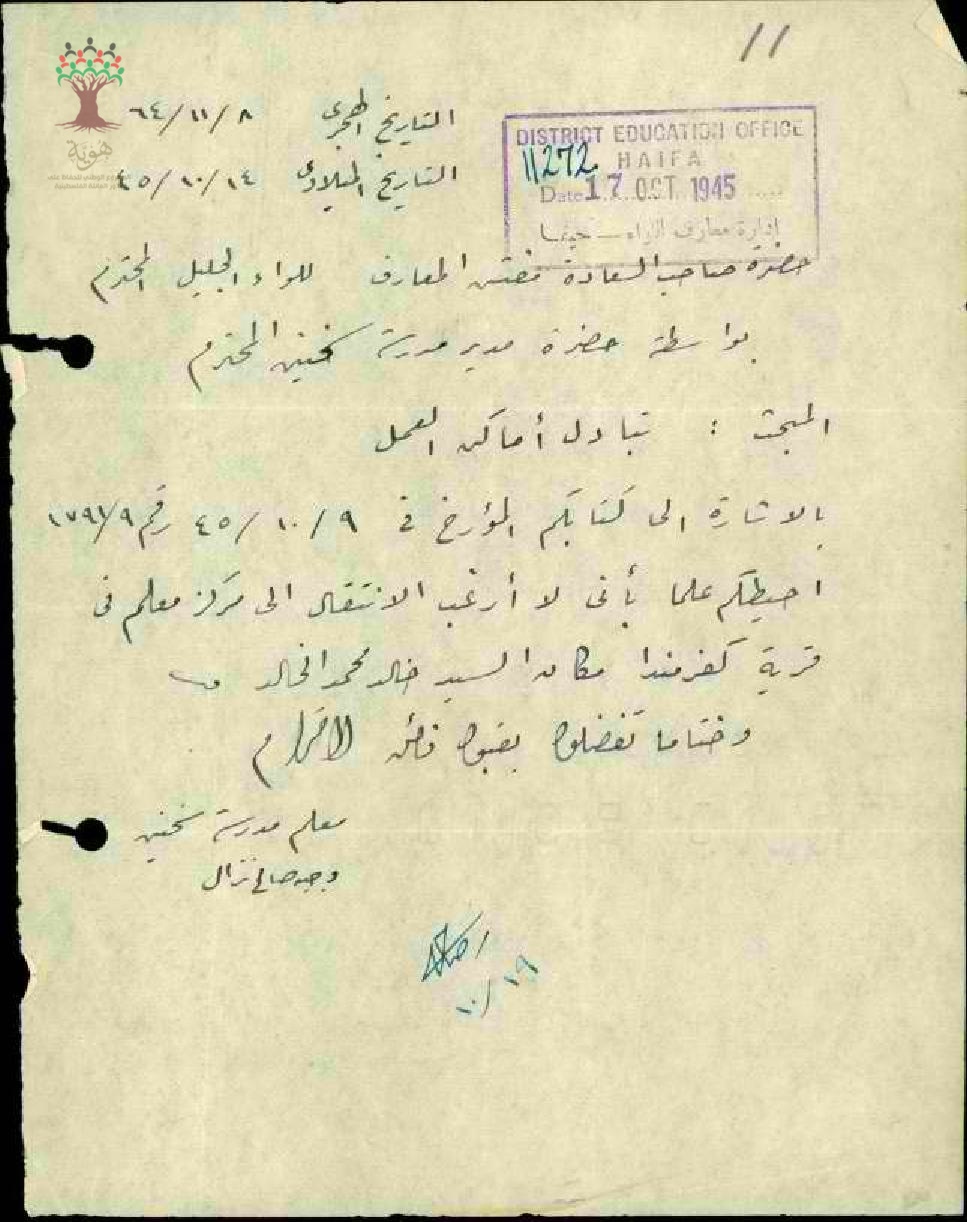 11
التاريخ الهجري ٦٤/١١/٨
DISTRICT EDUCATION OFFICE
11272
HAIFA
Date 17 OCT 1945
إدارة معارف اللواء — حيفا
هوية
التاريخ الميلادي ٤٥/١٠/١٤
حضرة صاحب السعادة مفتش المعارف للواء الجليل المحترم
بواسطة حضرة مدير مدرسة سخنين المحترم
المبحث : تبادل أماكن العمل
بالاشارة الى كتابكم المؤرخ في ٤٥/١٠/٩ رقم ١٧٩١/٩
احيطكم علما بأني لا أرغب الانتقال الى مركز معلم في
قرية كفرمندا مكان السيد خالد محمد الخالد
وختاما تفضلوا بقبول فائق الاحترام
معلم مدرسة سخنين
وجيه صالح نزال
١٠/١٩